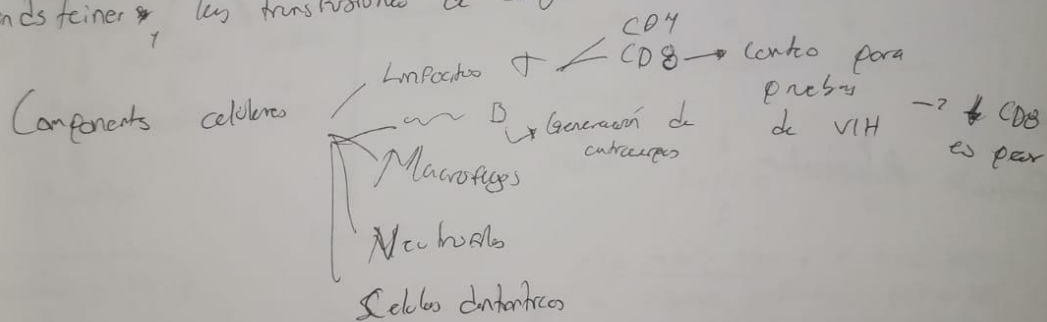 ndsteiner y las transfusiones de
Componentes celulares
Linfocitos T CD4
CD8 → Conteo para
pruebas
de VIH → ? ↓ CD8
es peor
~ B
↳ Generación de
anticuerpos
Macrofagos
Neutrofilos
Celulas dentriticas